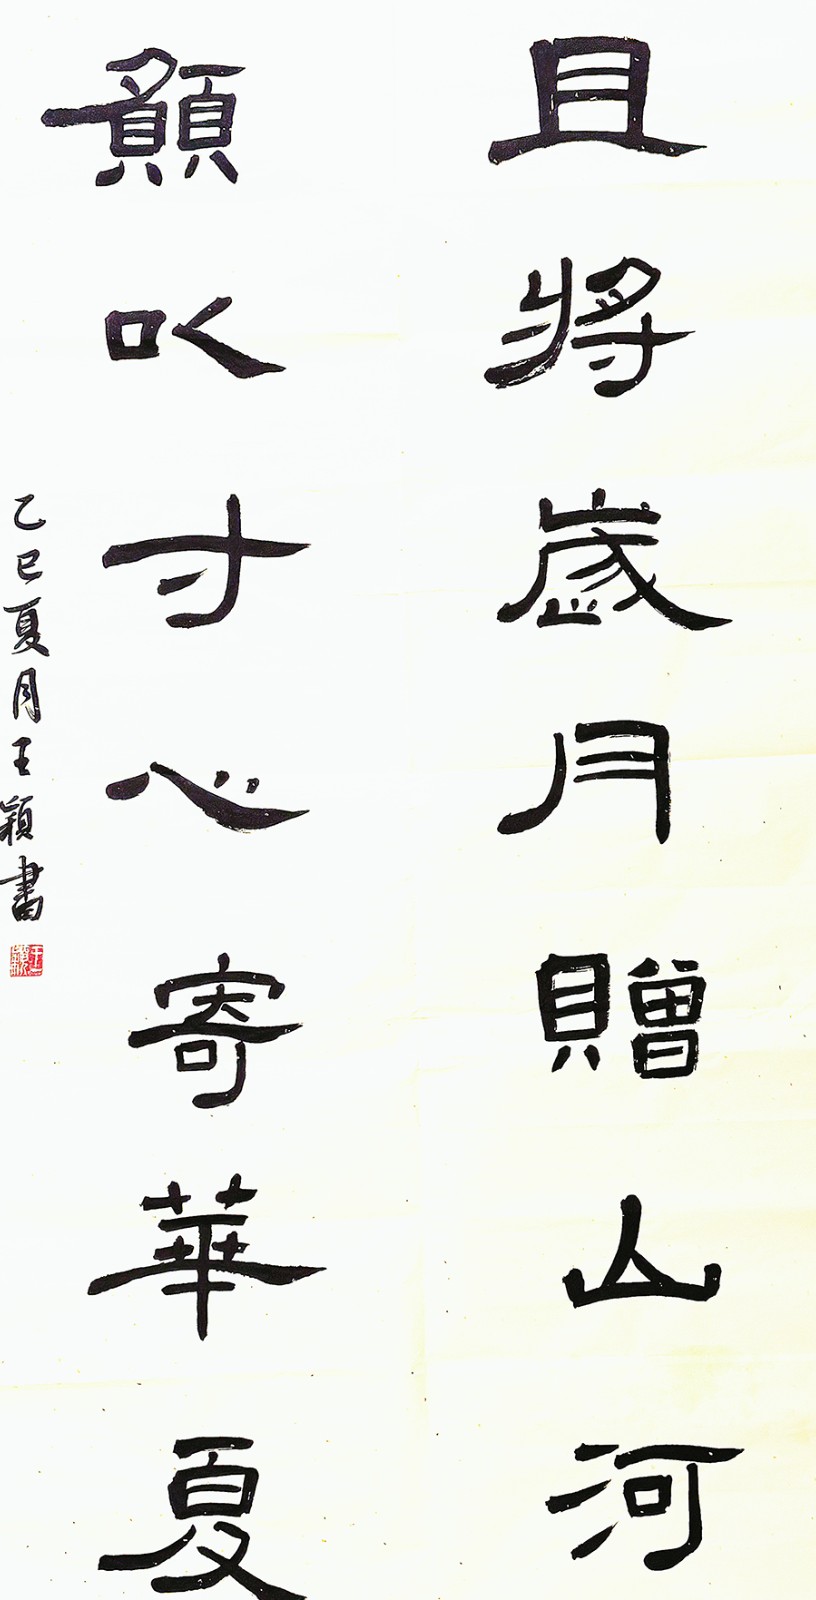 且將歲月贈山河
願以寸心寄華夏
乙巳夏月王穎書